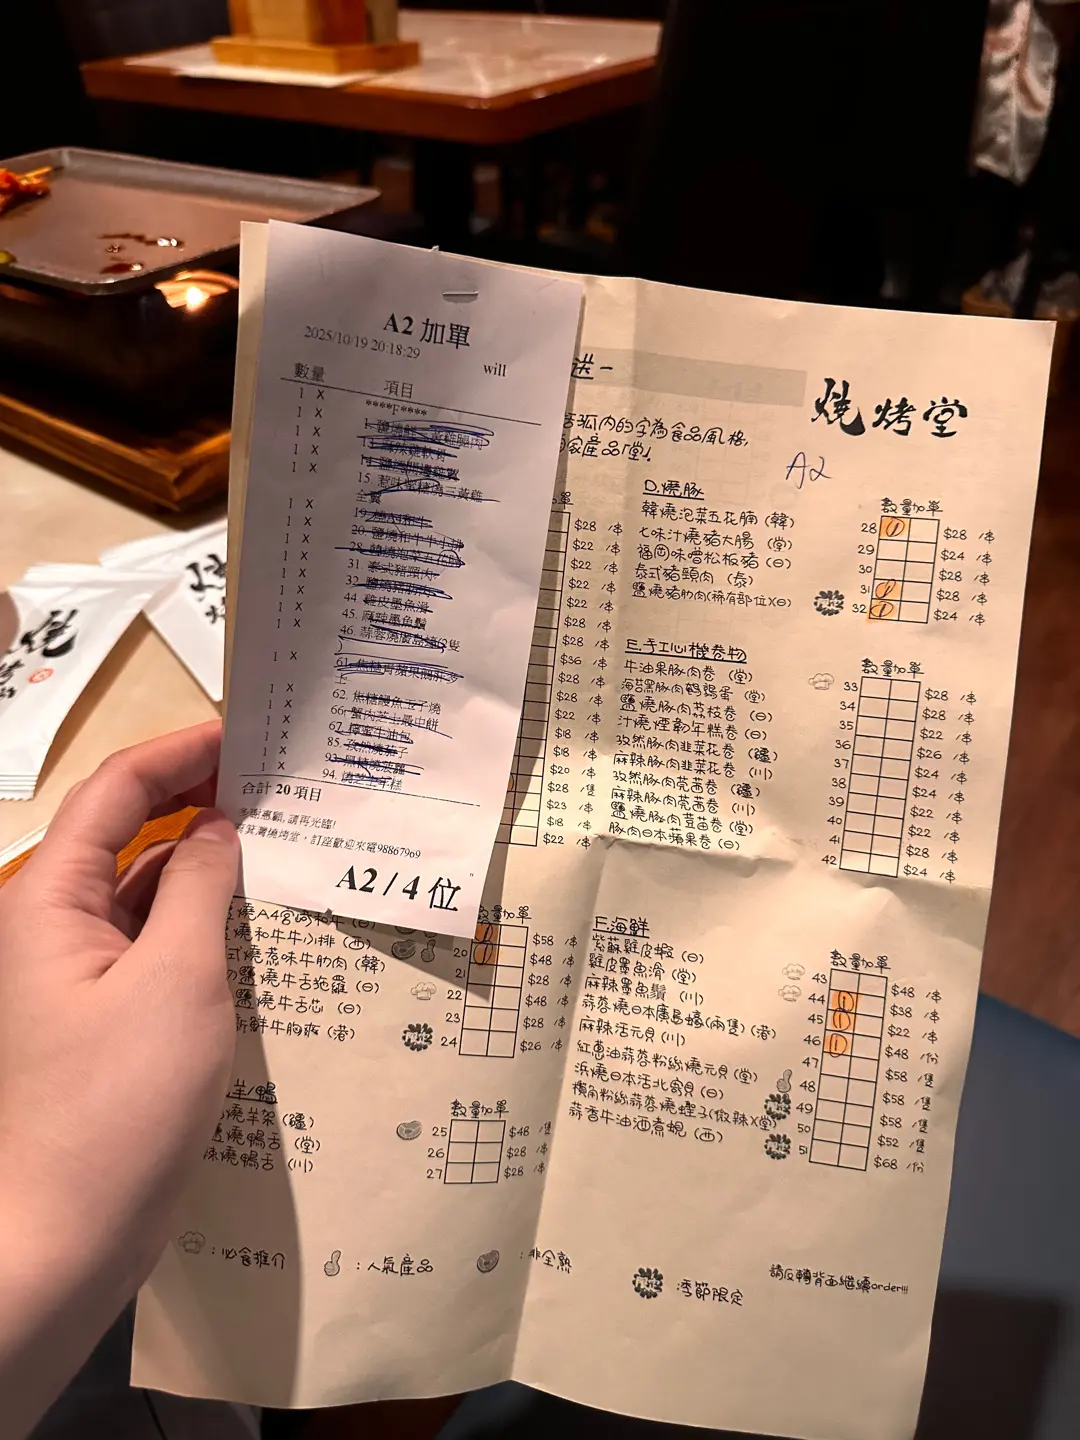 A2 加單
2025/10/19 20:18:29
will
數量 項目
1 X ****F****
1 X
1 X
1 X
1 X 15. 惹味蜜糖燒三黃雞
全翼
1 X
1 X
1 X
1 X 31. 泰式豬頸肉
1 X 32. 鹽燒豬肋肉
1 X 44. 雞皮墨魚滑
1 X 45. 麻辣墨魚鬚
1 X 46. 蒜蓉燒廣島蠔(2隻
)
1 X 61. 焦糖青蘋果鵝肝多
士
1 X 62. 焦糖鰻魚玉子燒
1 X 66. 蟹肉芝士最中餅
1 X 67. 蜂蜜牛油包
1 X 85. 孜然燒茄子
1 X
1 X 94. 燒芝士年糕
合計 20 項目
多謝惠顧,請再光臨!
燒烤堂，訂座歡迎來電98867969
A2 / 4 位
送一
括弧內的字為食品風格,
燒烤堂
A2
D.燒豚 數量 加單
韓燒泡菜五花腩 (韓) 28 1 $28 /串
七味汁燒豬大腸 (堂) 29 $24 /串
福岡味噌松板豬 (日) 30 $28 /串
泰式豬頸肉 (泰) 31 1 $28 /串
鹽燒豬肋肉(稀有部位)(日) 32 1 $24 /串
E.手工心機卷物 數量 加單
牛油果豚肉卷 (堂) 33 $28 /串
海苔黑豚肉鵪鶉蛋 (堂) 34 $28 /串
鹽燒豚肉荔枝卷 (日) 35 $28 /串
汁燒煙韌年糕卷 (日) 36 $26 /串
孜然豚肉韭菜花卷 (疆) 37 $24 /串
麻辣豚肉韭菜花卷 (川) 38 $24 /串
孜然豚肉芫茜卷 (疆) 39 $24 /串
麻辣豚肉芫茜卷 (川) 40 $24 /串
鹽燒豚肉荳苗卷 (堂) 41 $28 /串
豚肉日本蘋果卷 (日) 42 $24 /串
加單
$28 /串
$22 /串
$22 /串
$22 /串
$22 /串
$28 /串
$36 /串
$28 /串
$28 /串
$22 /串
$18 /串
$18 /串
$20 /串
$28 /隻
$23 /串
$18 /串
$22 /串
數量 加單
燒A4宮崎和牛 (日) 1 $58 /串
燒和牛牛小排 (西) 20 1 $48 /串
式燒惹味牛肋肉 (韓) 21 $28 /串
鹽燒牛舌拖羅 (日) 22 $48 /串
鹽燒牛舌芯 (日) 23 $28 /串
新鮮牛胸爽 (港) 24 $26 /串
羊/鴨 數量 加單
燒羊架 (疆) 25 $48 /隻
燒鴨舌 (堂) 26 $28 /串
燒鴨舌 (川) 27 $28 /串
F.海鮮 數量 加單
紫蘇雞皮蝦 (日) 43 $48 /串
雞皮墨魚滑 (堂) 44 1 $38 /串
麻辣墨魚鬚 (川) 45 1 $22 /串
蒜蓉燒日本廣島蠔(兩隻) (港) 46 1 $48 /份
麻辣活元貝 (川) 47 $58 /隻
紅蔥油蒜蓉粉絲燒元貝 (堂) 48 $58 /隻
浜燒日本活北寄貝 (日) 49 $58 /隻
欖角粉絲蒜蓉燒蟶子(微辣)(堂) 50 $52 /隻
蒜香牛油酒煮蜆 (西) 51 $68 /份
：必食推介
：人氣產品
：非全熟
：季節限定
請反轉背面繼續order!!!